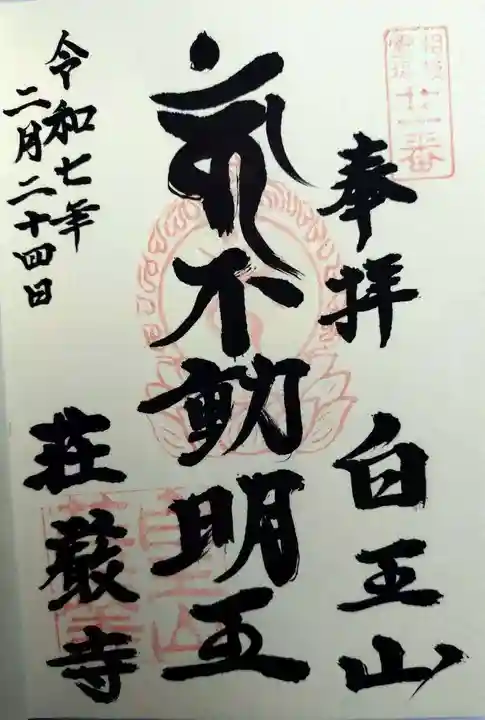 奉拝
白王山
不動明王
令和七年
二月二十四日
荘厳寺
廿一番
白王山